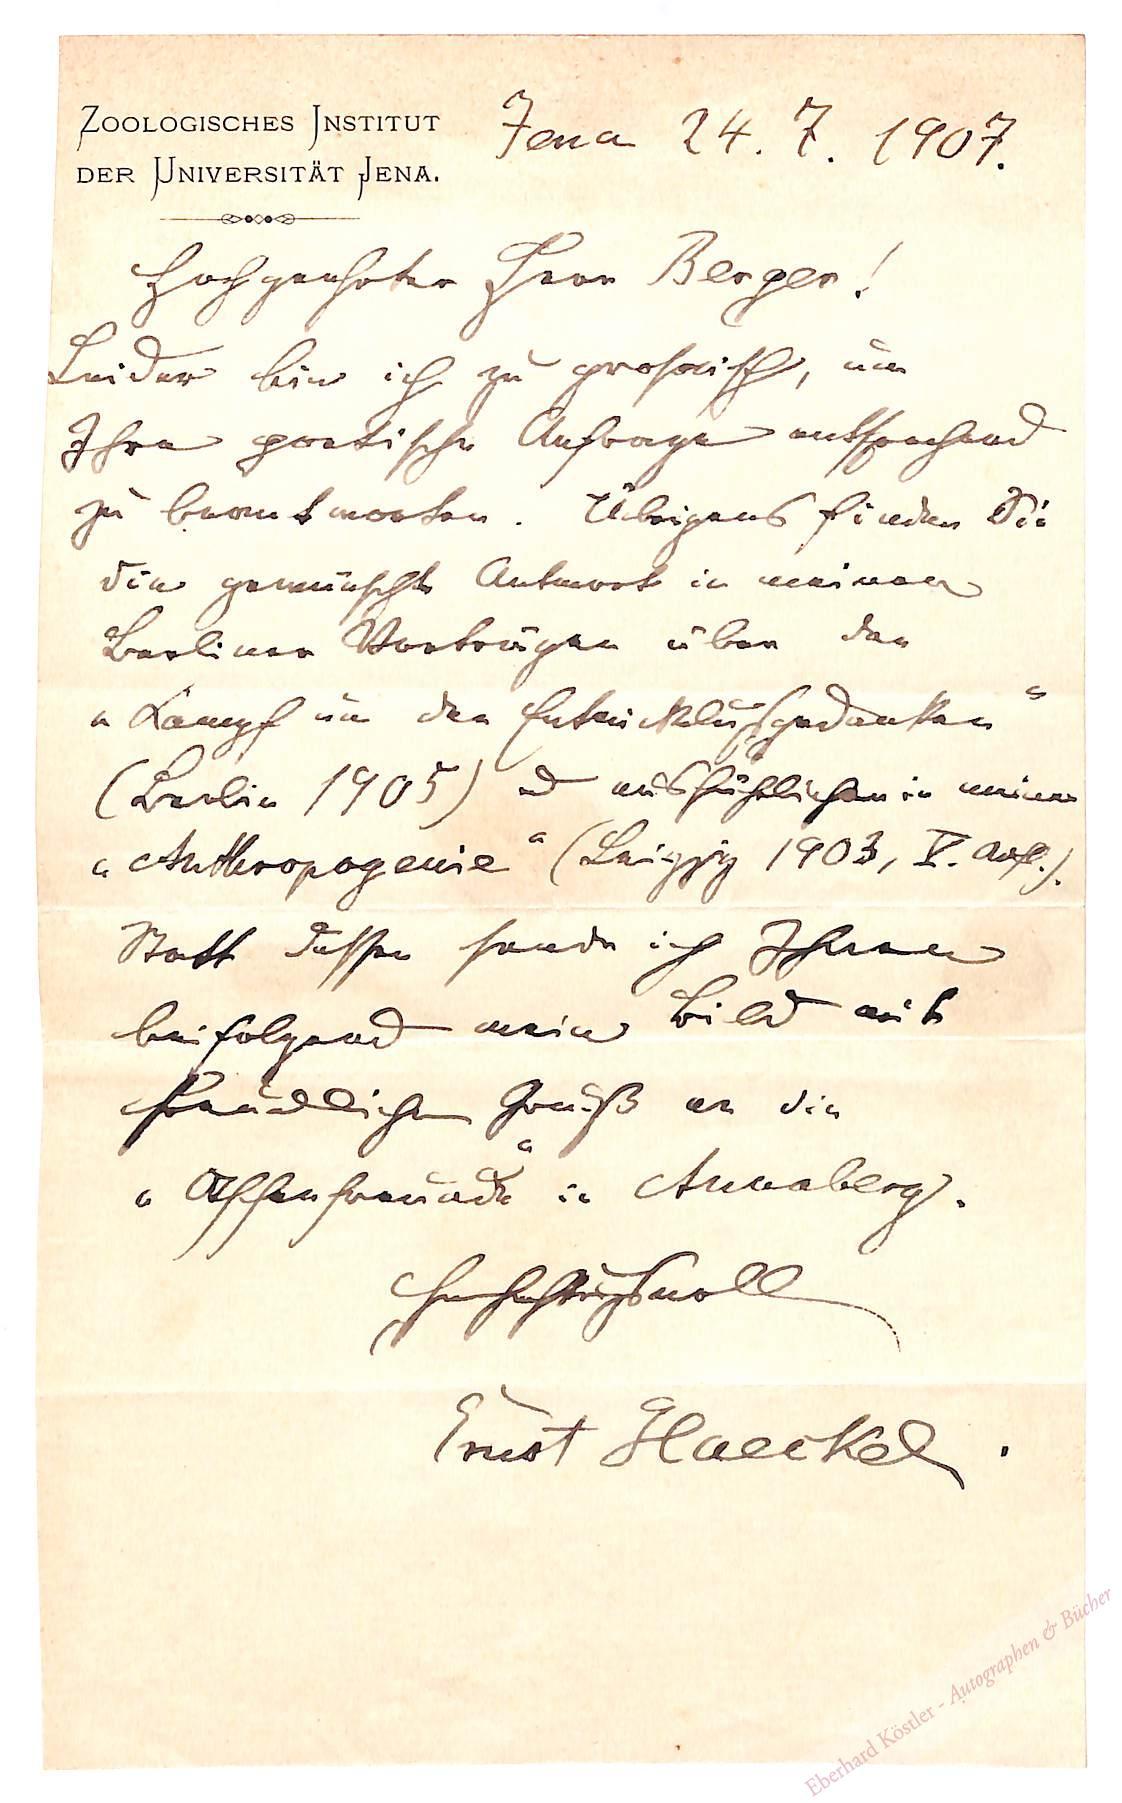 ZOOLOGISCHES INSTITUT
DER UNIVERSITÄT JENA.
Jena 24. 7. 1907.
Hochgeehrter Herr Berger!
Leider bin ich zu prosaisch, um
Ihre poetische Anfrage entsprechend
zu beantworten. Übrigens finden Sie
die gewünschte Antwort in meinen
Berliner Vorträgen über den
"Kampf um den Entwicklungsgedanken"
(Berlin 1905) und ausführlicher in meiner
"Anthropogenie" (Leipzig 1903, V. Aufl.).
Statt dessen sende ich Ihnen
beifolgend mein Bild mit
freundlichem Gruß an die
"Affenfreunde" in Annaberg.
Hochachtungsvoll
Ernst Haeckel.
Eberhard Köstler - Autographen & Bücher